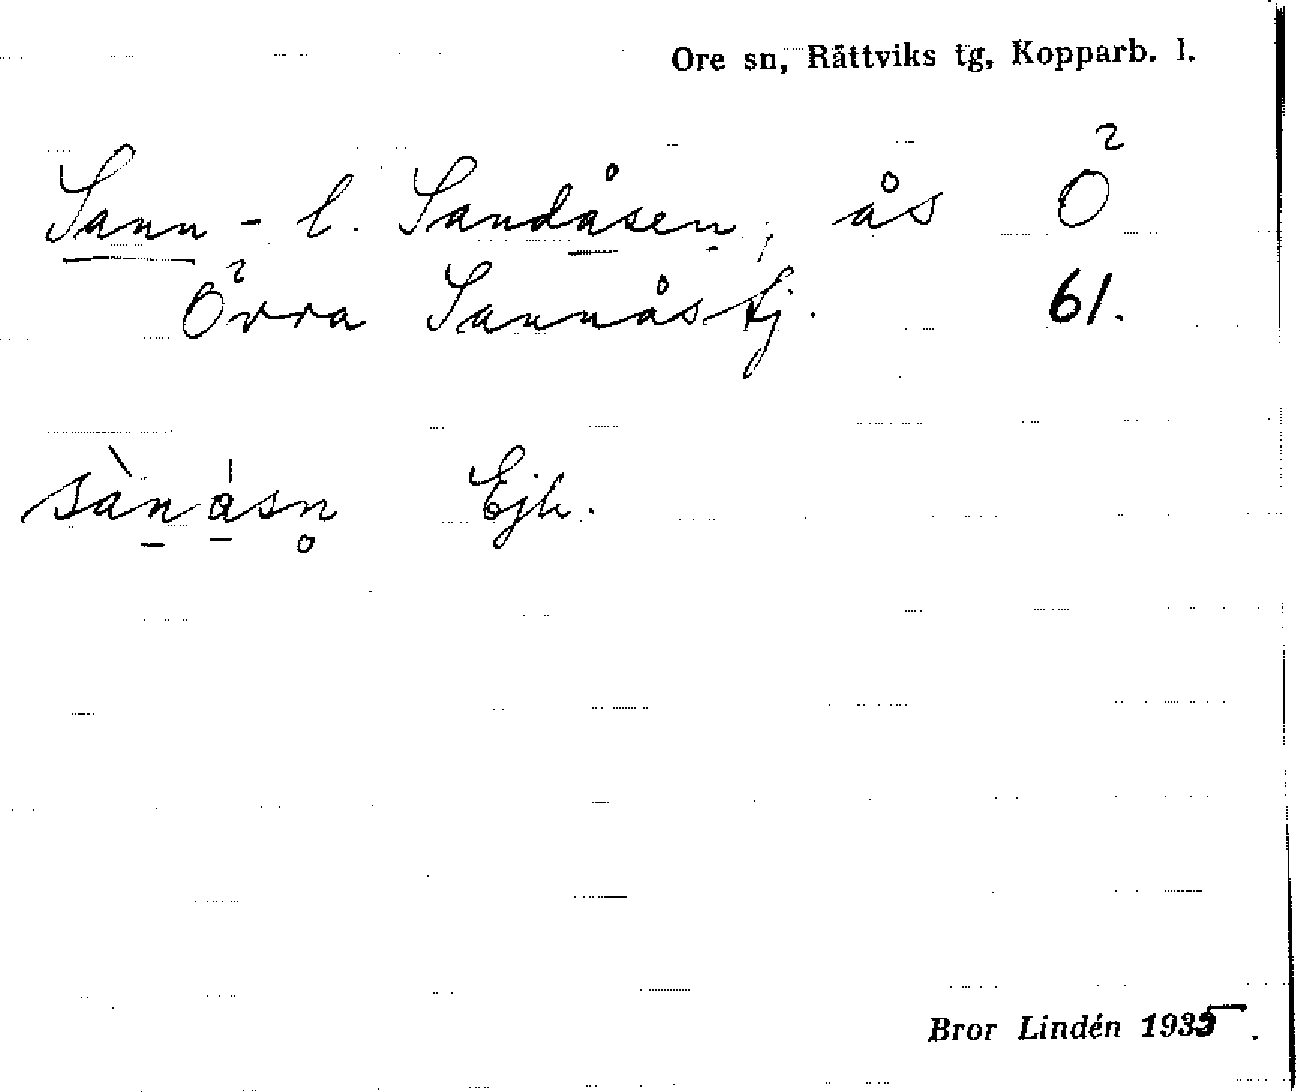 Ore sn, Rättviks tg, Kopparb. l.
Sann- l. Sandåsen, ås Ö
Övra Sannåstj. 61.
sànåsn Ejh.
Bror Lindén 1935.